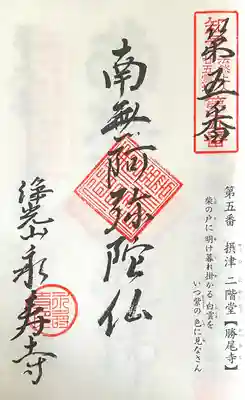 第五番
第五番 摂津 二階堂【勝尾寺】
柴の戸に 明け暮れ掛かる 白雲を
いつ紫の 色に見なさん
南無阿弥陀仏
浄光山 永寿寺